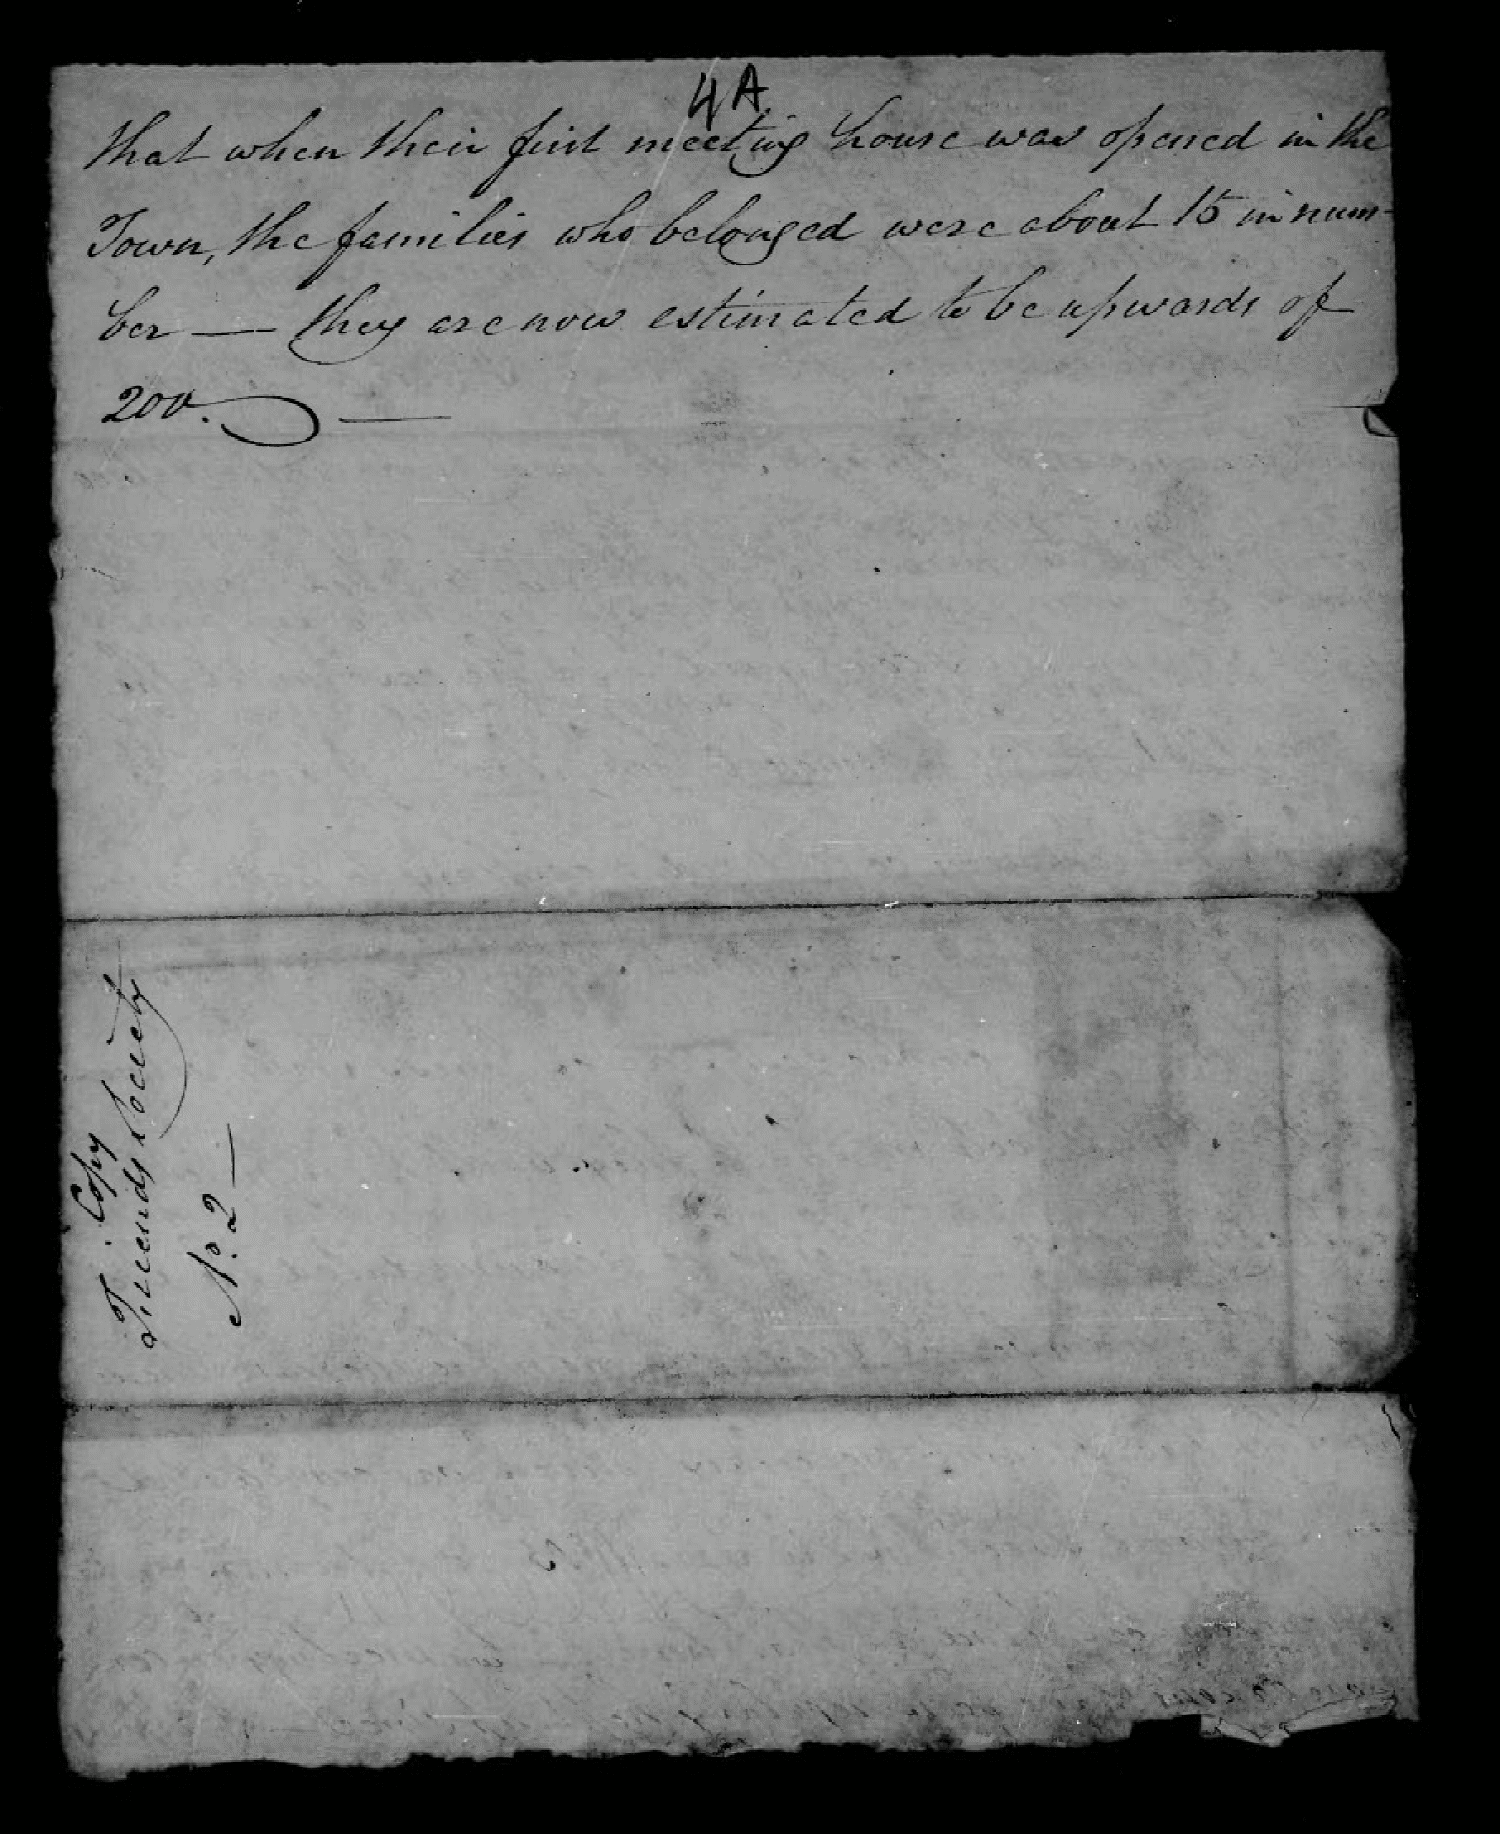 4A
that when their first meeting house was opened in the
Town, the families who belonged were about 15 in num-
ber — they are now estimated to be upwards of
200. —
Copy
Friends Society
No. 2 —